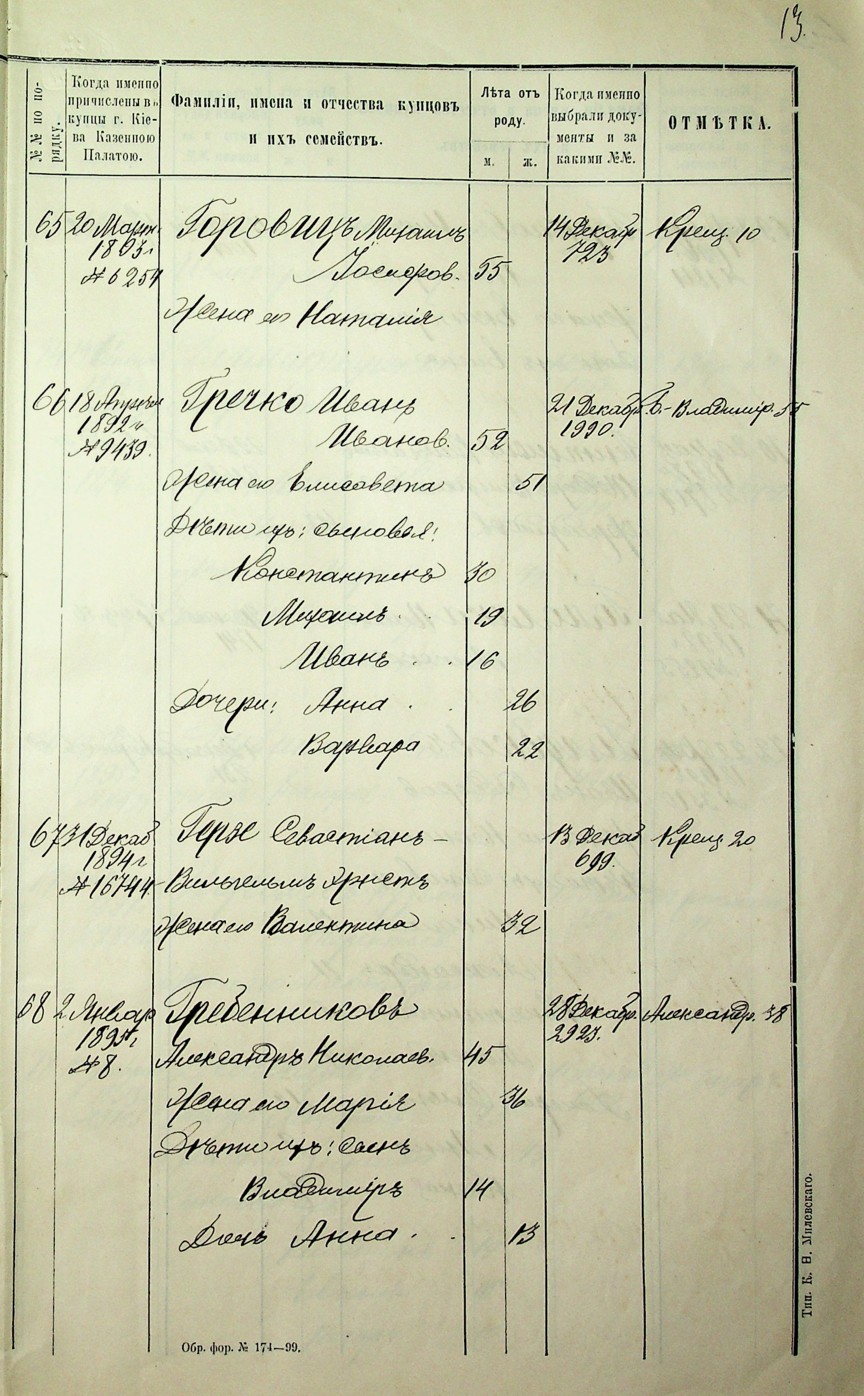 13.
№№ по по-
рядку.
Когда именно
причислены въ
купцы г. Кіе-
ва Казенною
Палатою.
Фамиліи, имена и отчества купцовъ
и ихъ семействъ.
Лѣта отъ
роду.
м.
ж.
Когда именно
выбрали доку-
менты и за
какими №№.
ОТМѢТКА.
65 20 Март Горовицъ Михаилъ 14 Декабр Крещ. 10
1893 г 723
№ 6254 55
Жена его Наталія
66 18 Гречко Иванъ 21 Декабр. Б.-Владимір. 55
1892 г 1990.
Иванов. 52
№ 9439.
Жена его Елисавета 51
Дѣти ихъ: сыновья:
Константинъ 30
Михаилъ 19
Иванъ 16
Дочери: Анна 26
Варвара 22
67 31 Декаб Герже Севастіанъ- 13 Декаб Крещ. 20
1894 г 699.
№ 16744 Вильгельмъ Эрнстъ
Жена его Валентина 32
68 2 Январ Гребенниковъ 28 Декабр. Александр. 38
1895 г. 2923.
№ 8. Александръ Николаев. 45
Жена его Марія 36
Дѣти ихъ: сынъ
Владиміръ 14
Дочь Анна 13
Обр. фор. № 174—99.
Тип. К. Н. Милевскаго.